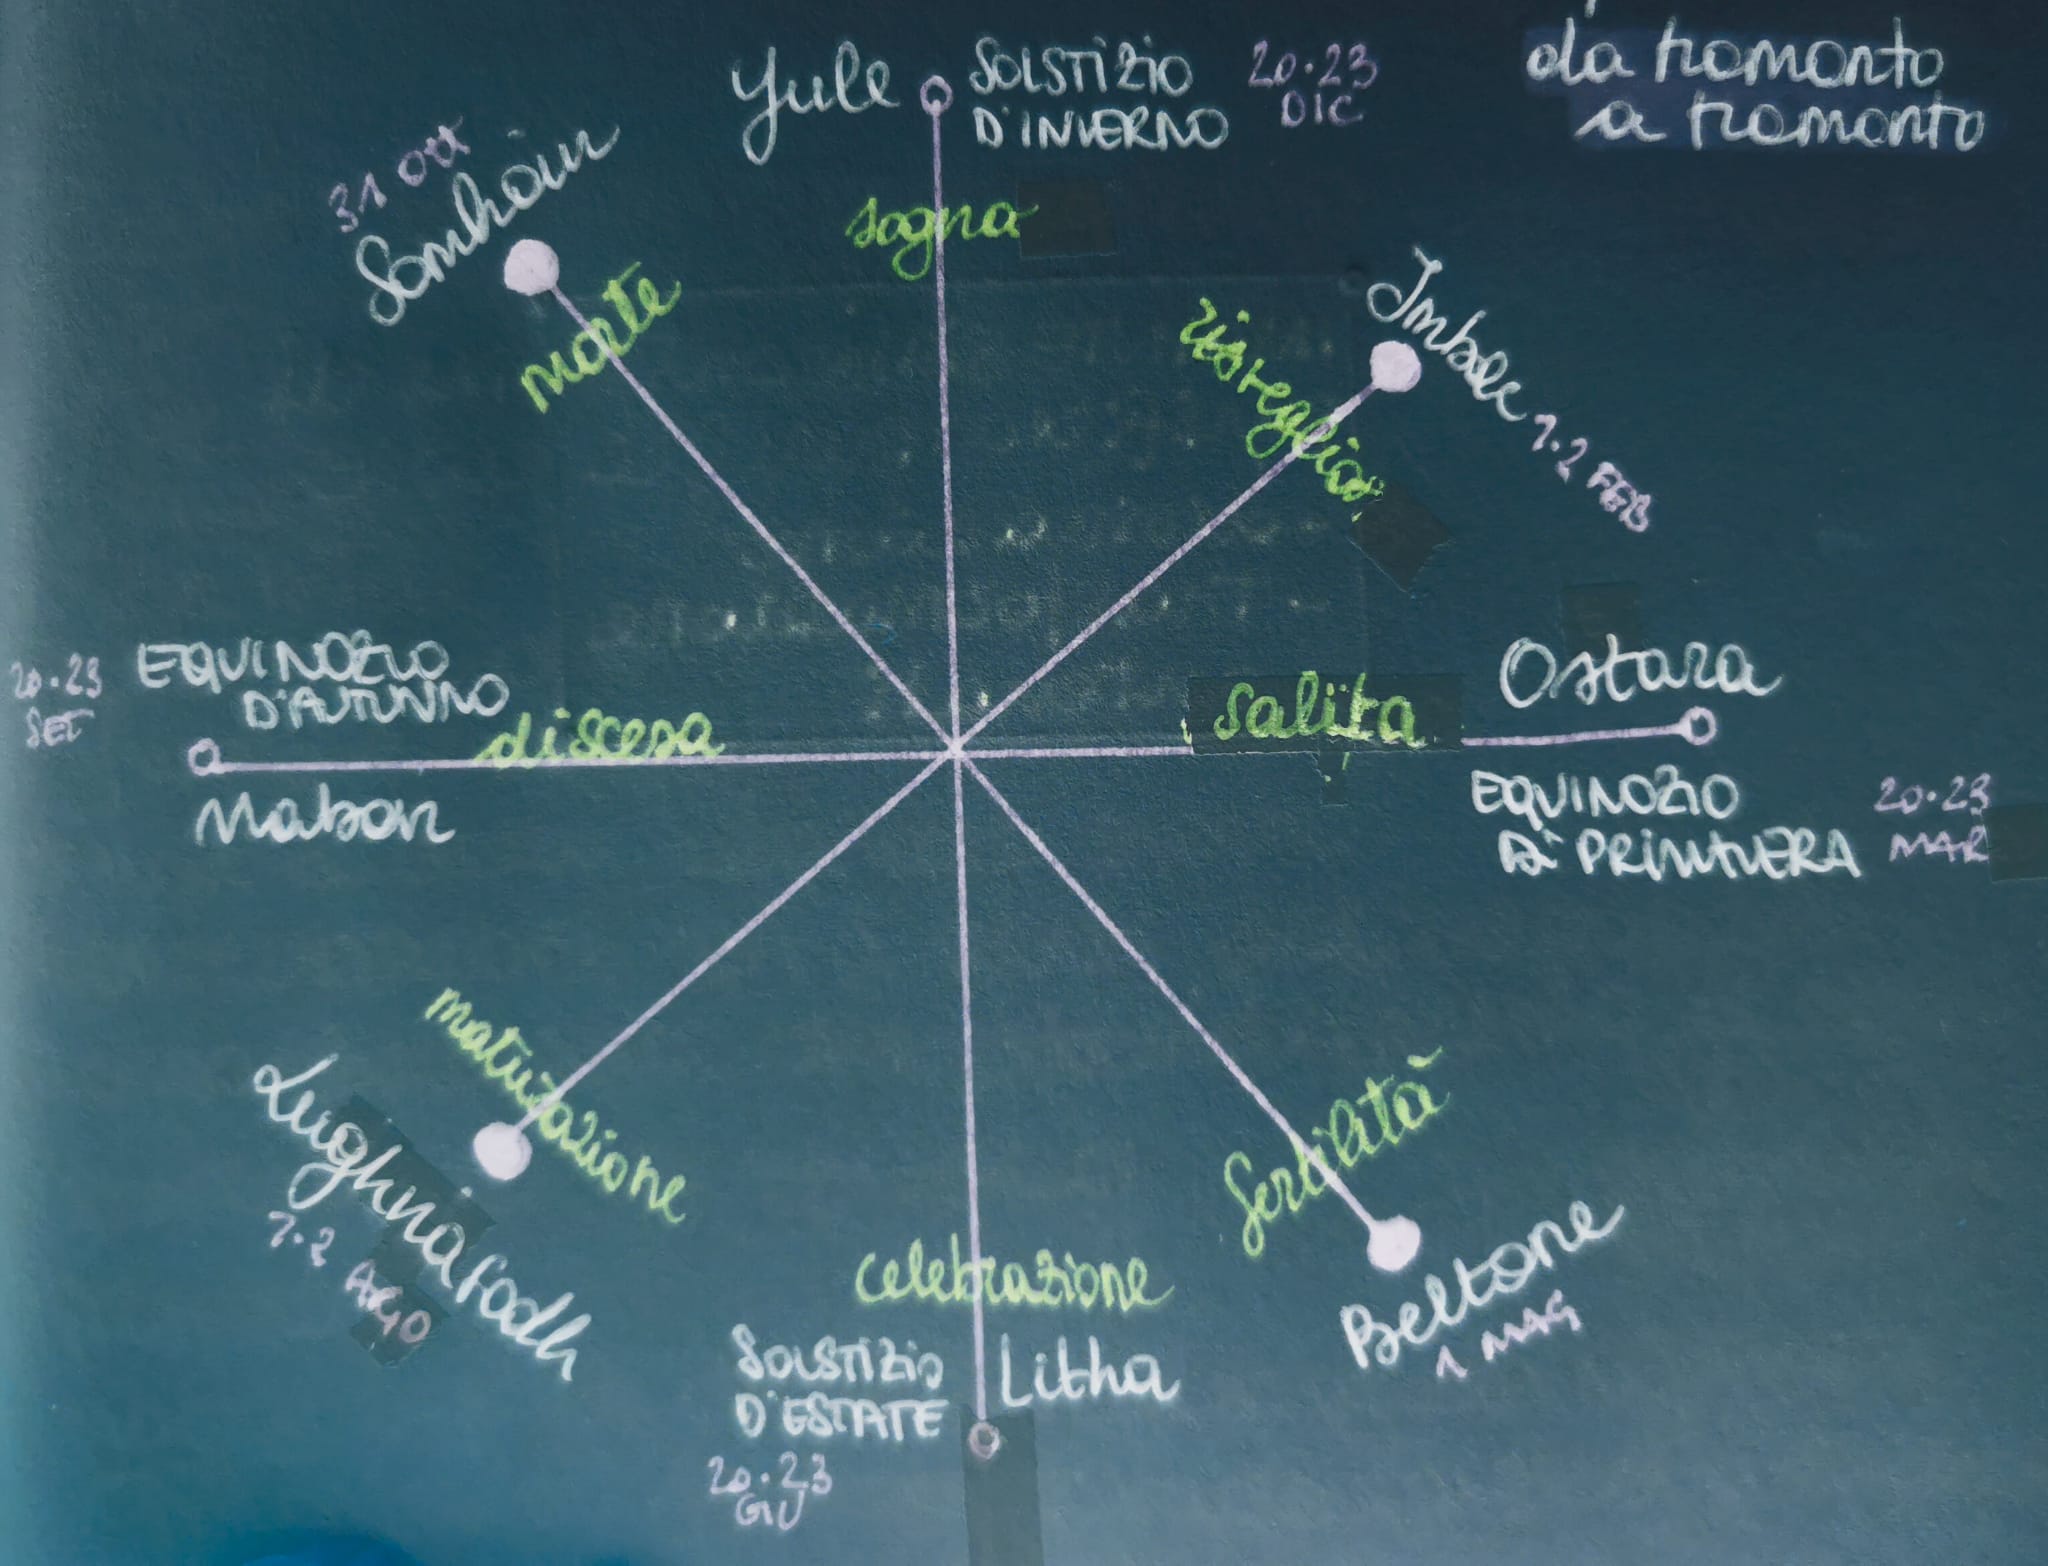 da tramonto
a tramonto
Yule
SOLSTIZIO
D'INVERNO
20·23
DIC
sogna
31 Ott
Samhain
morte
Imbolc
1·2 FEB
risveglio
Ostara
EQUINOZIO
DI PRIMAVERA
20·23
MAR
salita
20·23
SET
EQUINOZIO
D'AUTUNNO
discesa
Mabon
maturazione
Lughnasadh
1·2 AGO
fertilità
Beltane
1 MAG
celebrazione
SOLSTIZIO
D'ESTATE
Litha
20·23
GIU